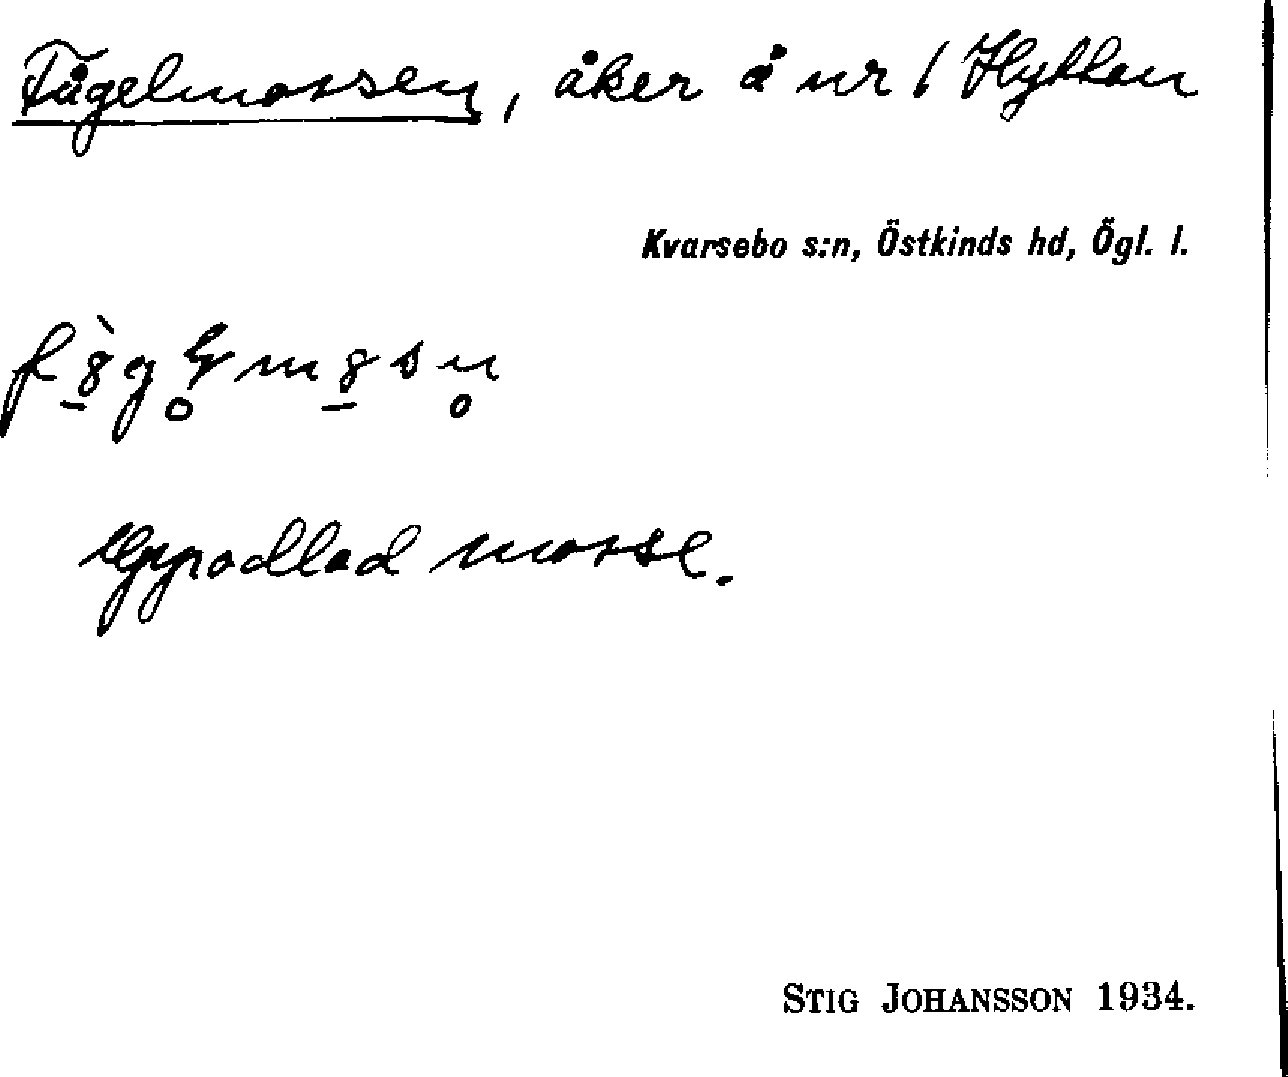 Fågelmossen, åker å nr 1 Hyttan
Kvarsebo s:n, Östkinds hd, Ögl. l.
Uppodlad mosse.
STIG JOHANSSON 1934.